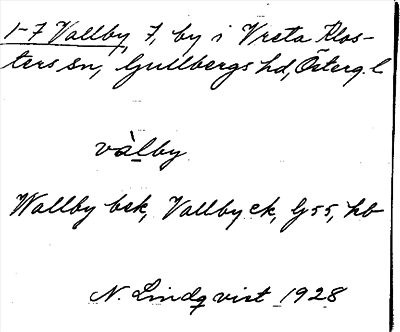 1-7 Vallby, 7, by i Vreta Klos-
ters sn, Gullbergs hd, Österg. l
vàlby
Wallby bsk, Vallby ek, G55, hb
N. Lindqvist 1928